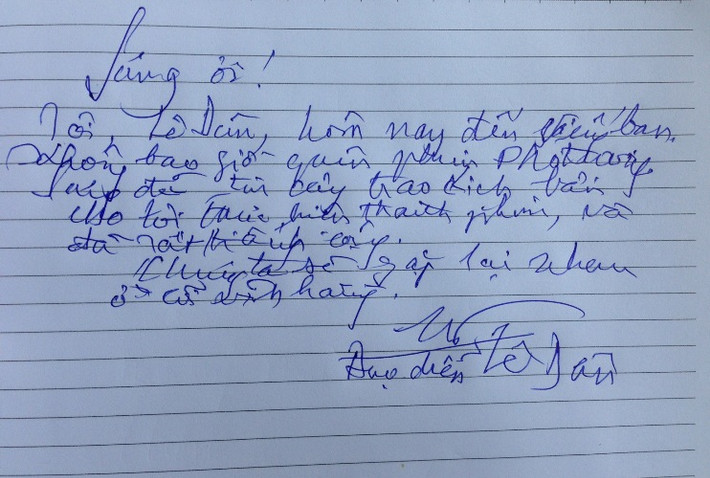 Sáng ơi!
Tôi, Lê Dân, hôm nay đến viếng bạn.
không bao giờ quên phim
đã tin cậy trao kịch bản
cho tôi thực hiện thành phim, và
đã rất thành công.
Chúng ta sẽ gặp lại nhau
ở cõi vĩnh hằng.
Đạo diễn Lê Dân